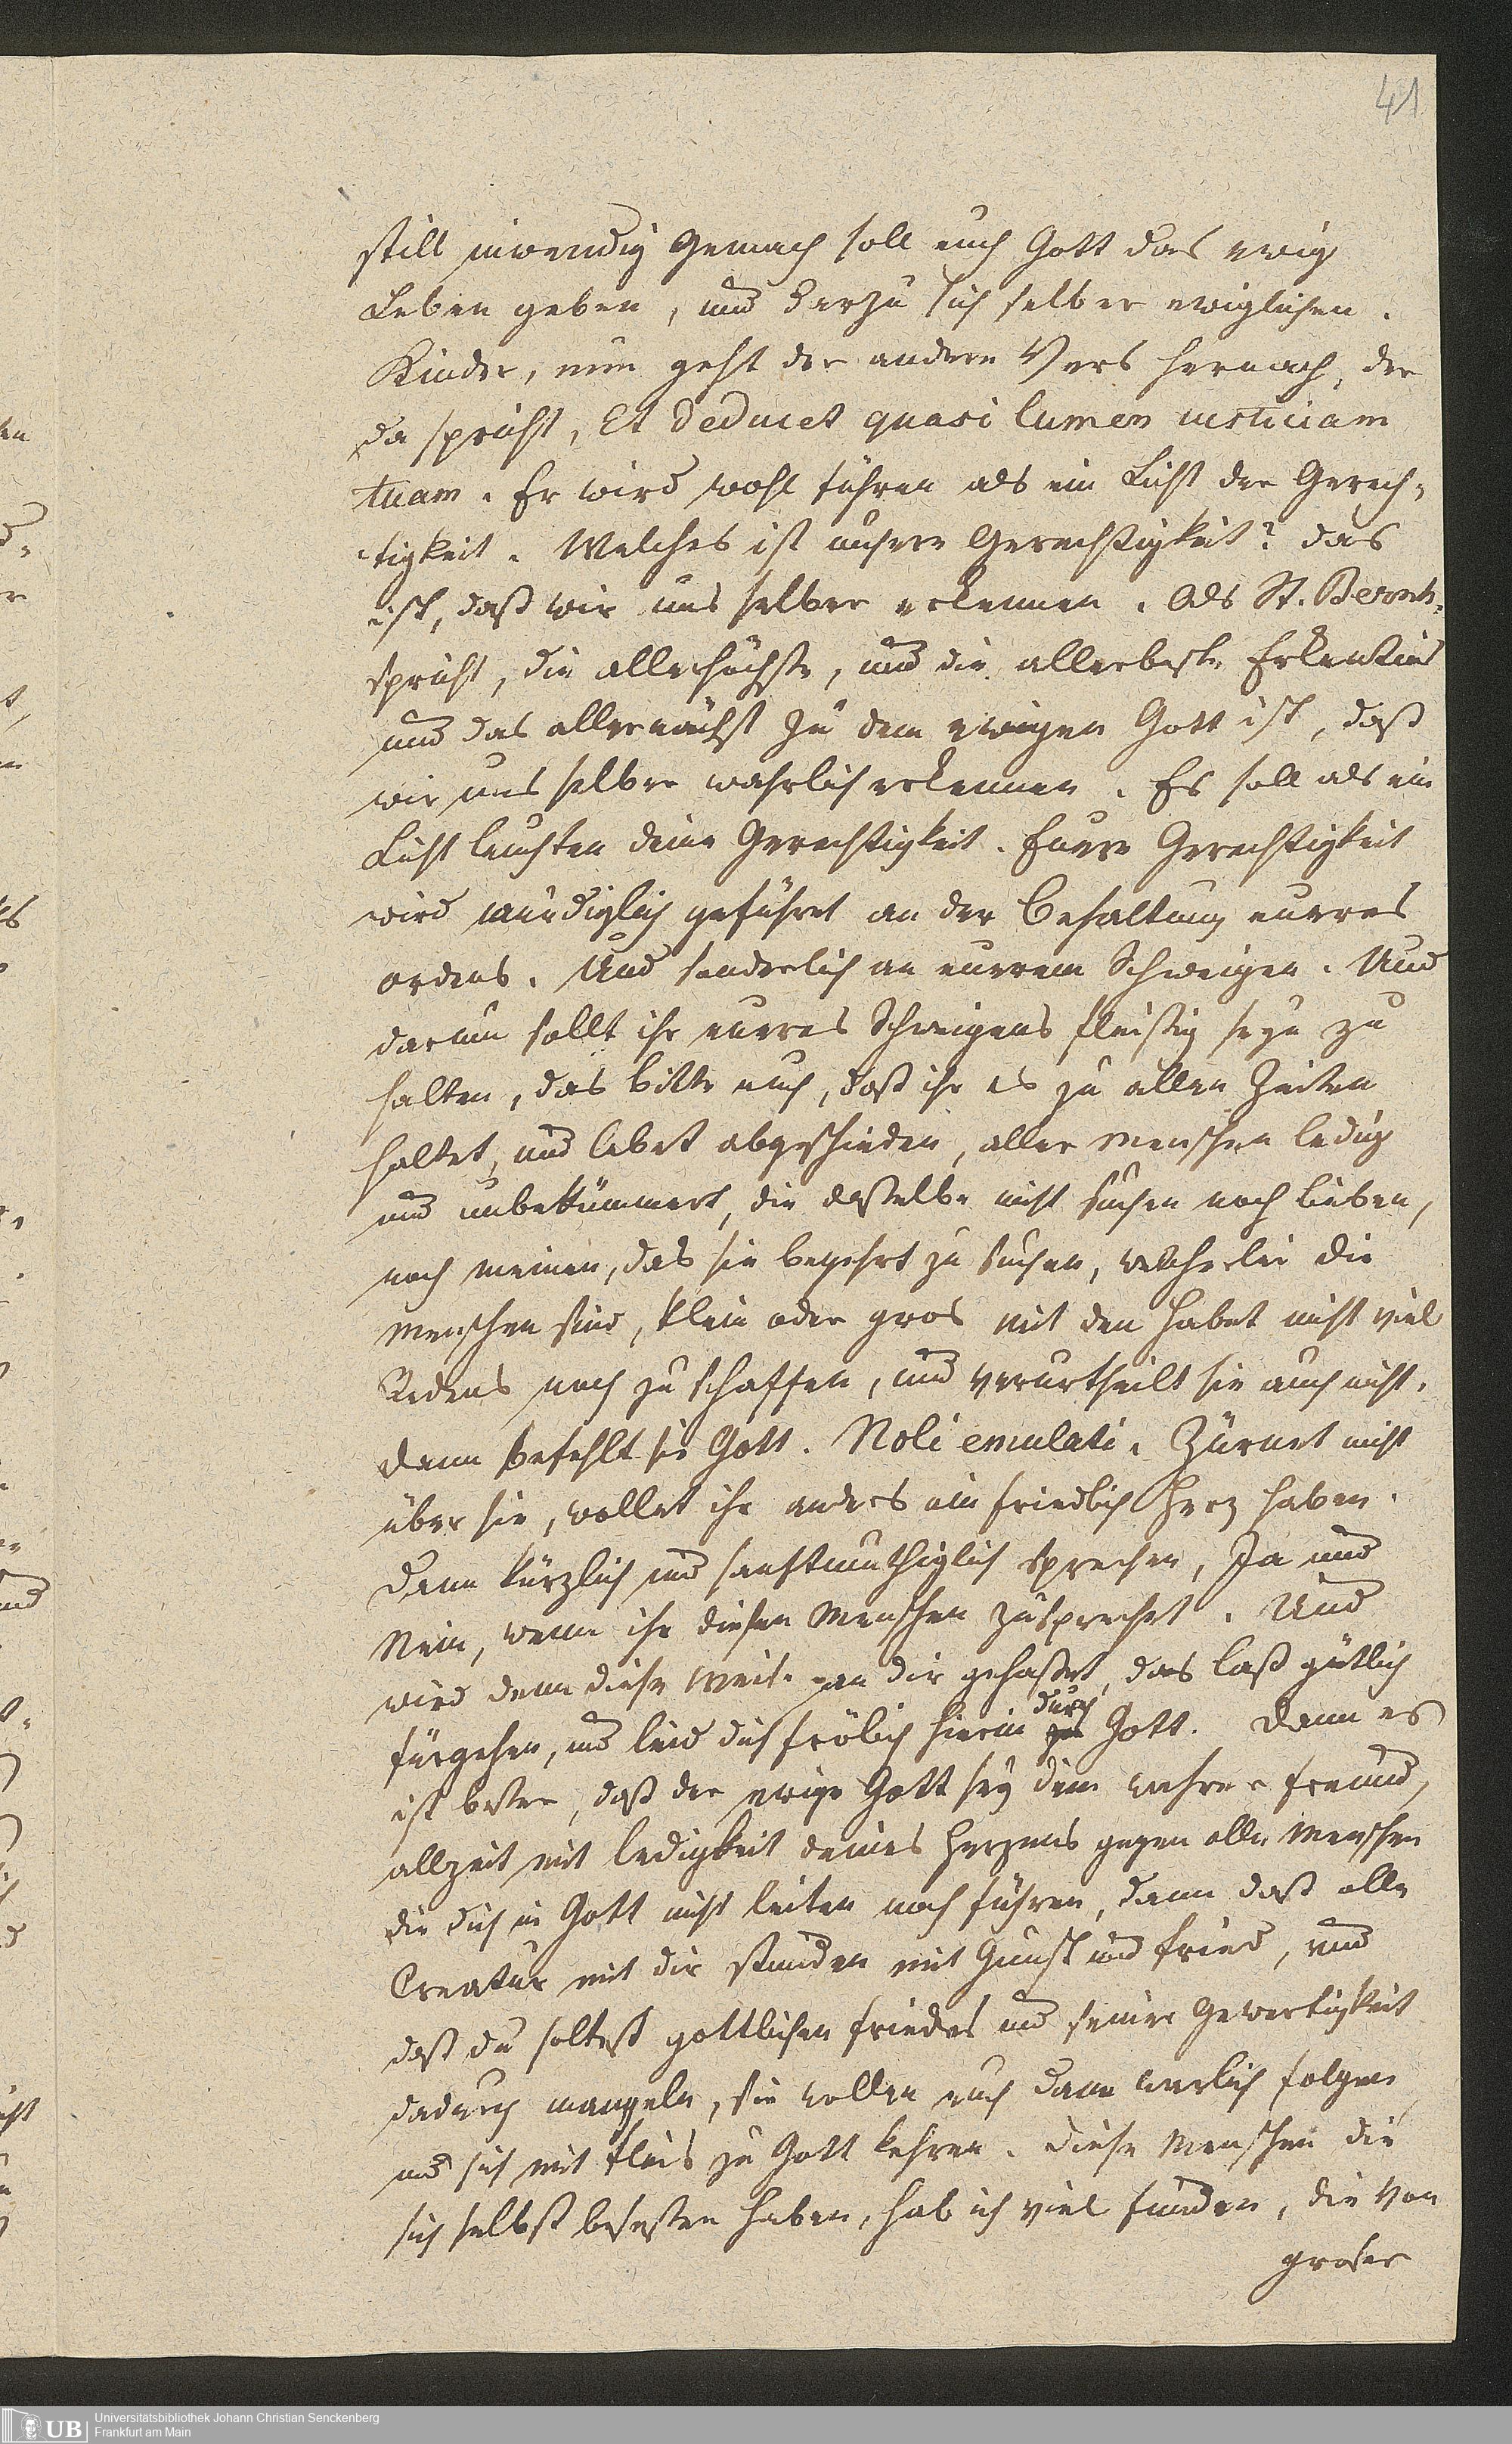 41
still inwendig Gemach soll euch Gott das ewig
Leben geben, und darzu sich selber ewiglichen.
Kinder, nun geht der andere Vers hernach, der
da spricht, Et deducet quasi lumen iusticiam
tuam. Er wird wohl führen als ein Licht der Gerech-
tigkeit. Welches ist unsere Gerechtigkeit? das
ist, daß wir uns selber erkennen. Als St. Bernh.
spricht, die allerhöchste, und die allerbeste Erkentnis
und das allernächst zu dem ewigen Gott ist, daß
wir uns selber wahrlich erkennen. Es soll als ein
Licht leuchten deine Gerechtigkeit. Euere Gerechtigkeit
wird würdiglich geführet an der Behaltung eueres
ordens. Und sonderlich an euerem Schweigen. Und
darum sollt ihr eueres Schweigens fleissig seyn zu
halten, das bitte euch, daß ihr es zu allen Zeiten
haltet, und lebet abgeschieden, aller Menschen ledig
und unbekümmert, die dasselbe nicht suchen noch lieben,
noch meinen, das sie begehrt zu suchen, welcherlei die
Menschen sind, klein oder gros mit den habet nicht viel
Redens noch zu schaffen, und verurtheilt sie auch nicht.
dann befehlt sie Gott. Noli emulati. Zürnet nicht
über sie, wollet ihr anders ein friedlich Herz haben.
dann kürzlich und sanftmuthiglich sprechen, Ja und
Nein, wenn ihr diesen Menschen zusprechet. Und
wird denn diese Weise an dir gehasset, das laß gütlich
fürgehen, und leid dich frölich hierin durch Gott. Dann es
ist besser, daß der ewige Gott sey dein wahrer Freund,
allzeit mit ledigkeit deines Herzens gegen alle Menschen
die dich in Gott nicht leiten noch führen, dann daß alle
Creatur mit dir stünden mit Gunst und Fried, und
daß du soltest gottlichen Friedes und seiner Gewertigkeit
dadurch mangeln, sie wollen euch dann werlich folgen
und sich mit fleis zu Gott kehren. Diese Menschen die
sich selbst besessen haben, hab ich viel funden, die von
groser
UB
Universitätsbibliothek Johann Christian Senckenberg
Frankfurt am Main